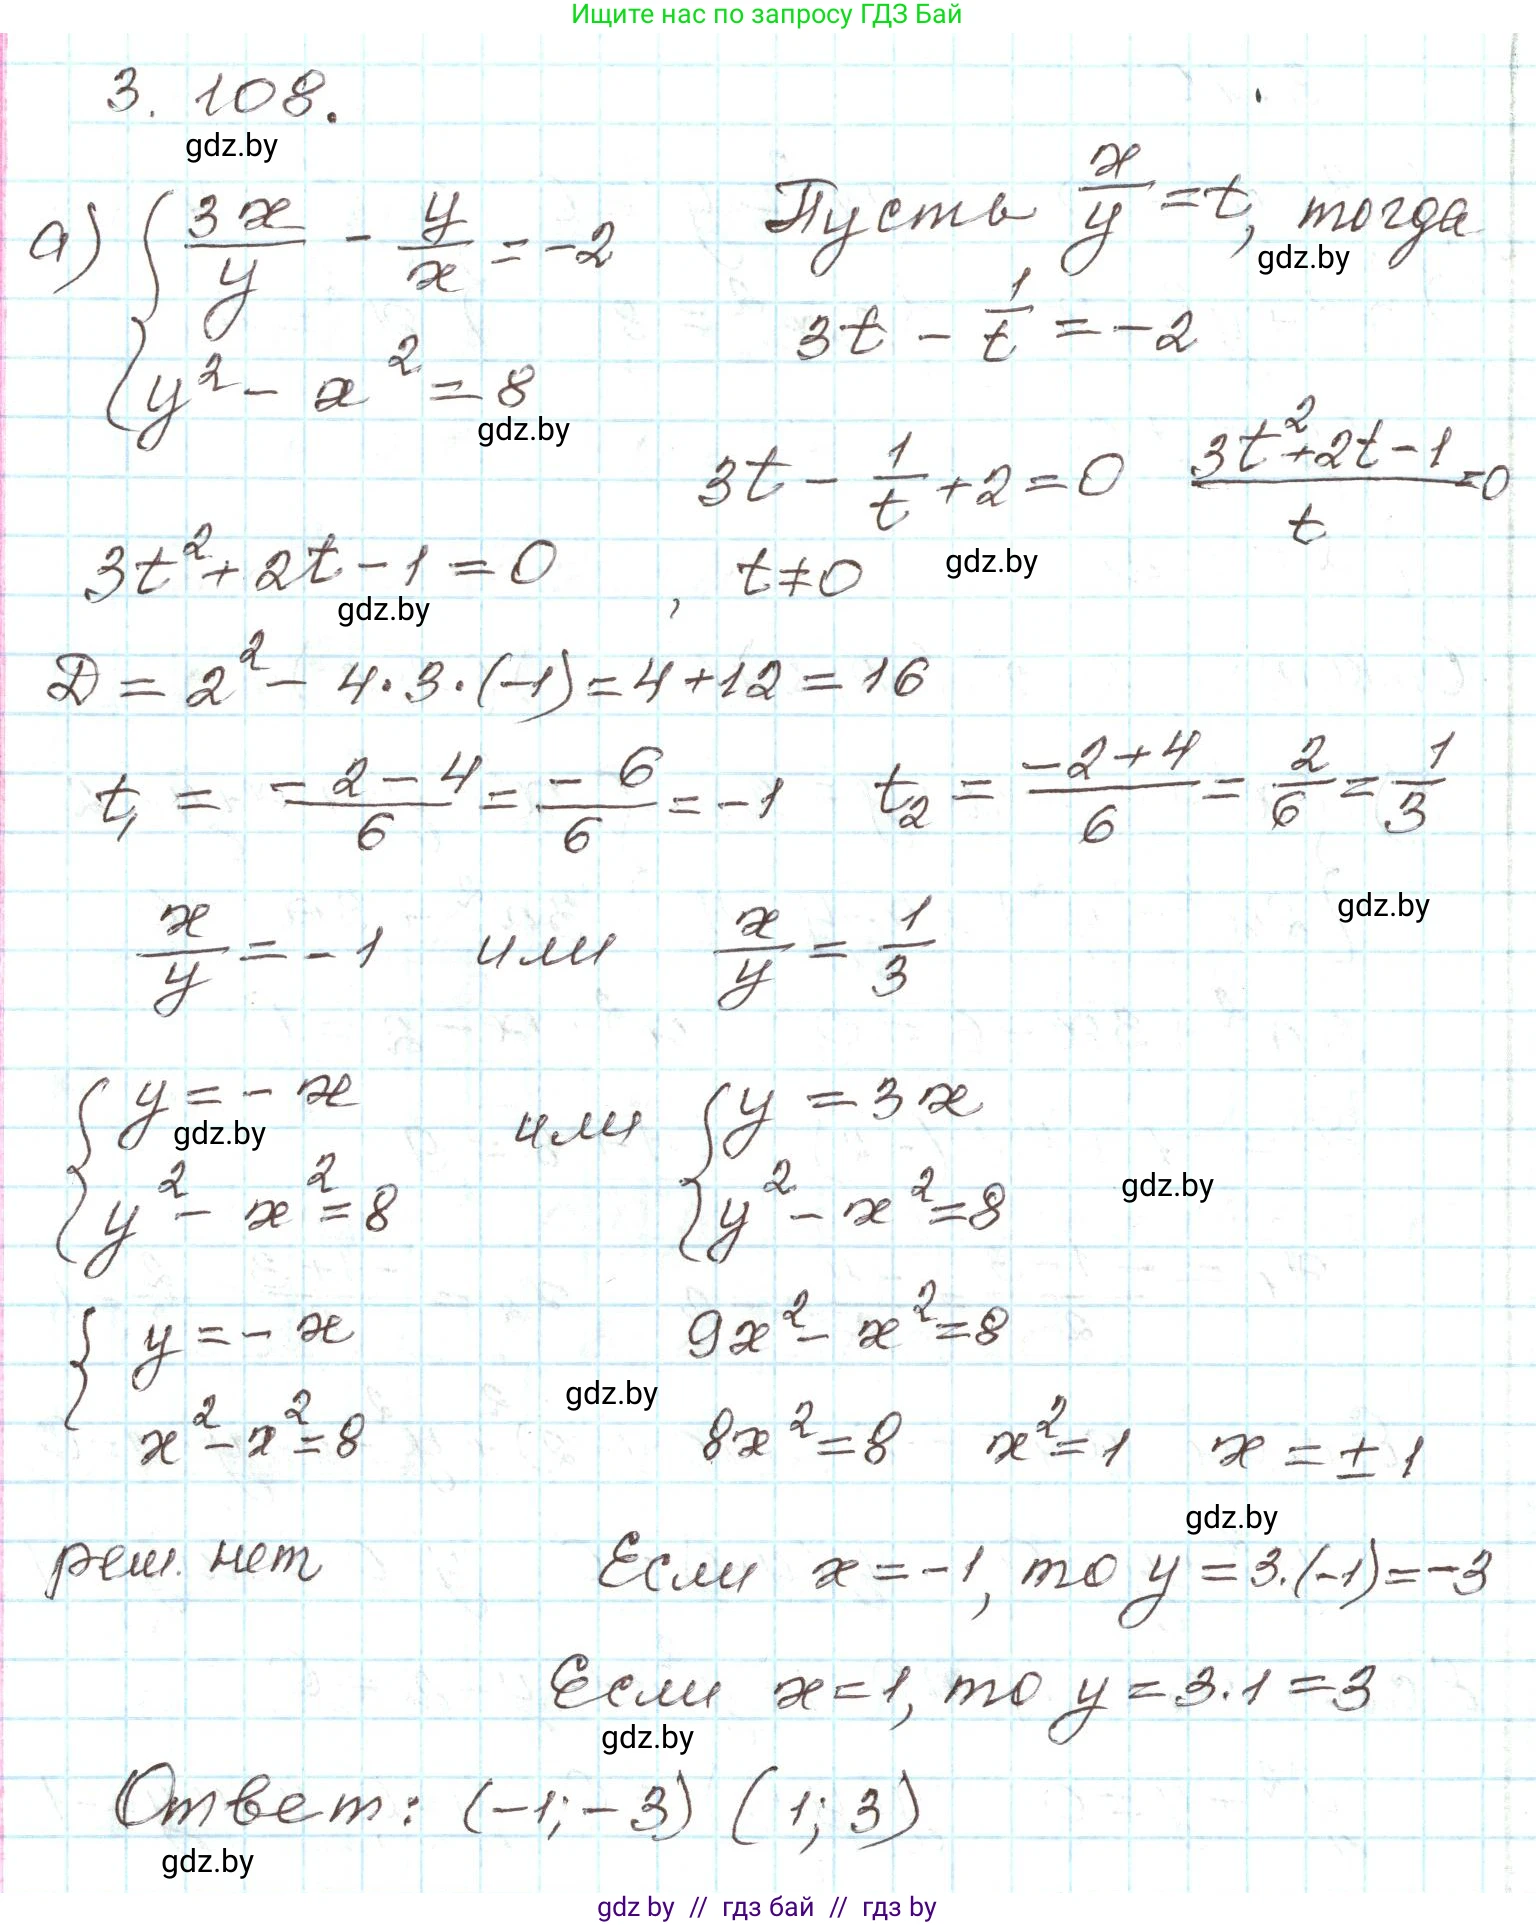 Ищите нас по запросу ГДЗ Бай
3. 108.
gdz.by
а) { 3x/y - y/x = -2
Пусть x/y = t, тогда
gdz.by
3t - 1/t = -2
y² - x² = 8
gdz.by
3t - 1/t + 2 = 0   (3t² + 2t - 1)/t = 0
3t² + 2t - 1 = 0 , t ≠ 0
gdz.by
gdz.by
D = 2² - 4·3·(-1) = 4 + 12 = 16
t₁ = (-2 - 4)/6 = -6/6 = -1   t₂ = (-2 + 4)/6 = 2/6 = 1/3
gdz.by
x/y = -1 или x/y = 1/3
{ y = -x или { y = 3x
gdz.by
y² - x² = 8   y² - x² = 8
gdz.by
{ y = -x   9x² - x² = 8
gdz.by
x² - x² = 8   8x² = 8   x² = 1   x = ± 1
gdz.by
реш. нет   Если x = -1, то y = 3·(-1) = -3
Если x = 1, то y = 3·1 = 3
gdz.by
Ответ: (-1; -3) (1; 3)
gdz.by
gdz by // гдз бай // гдз by